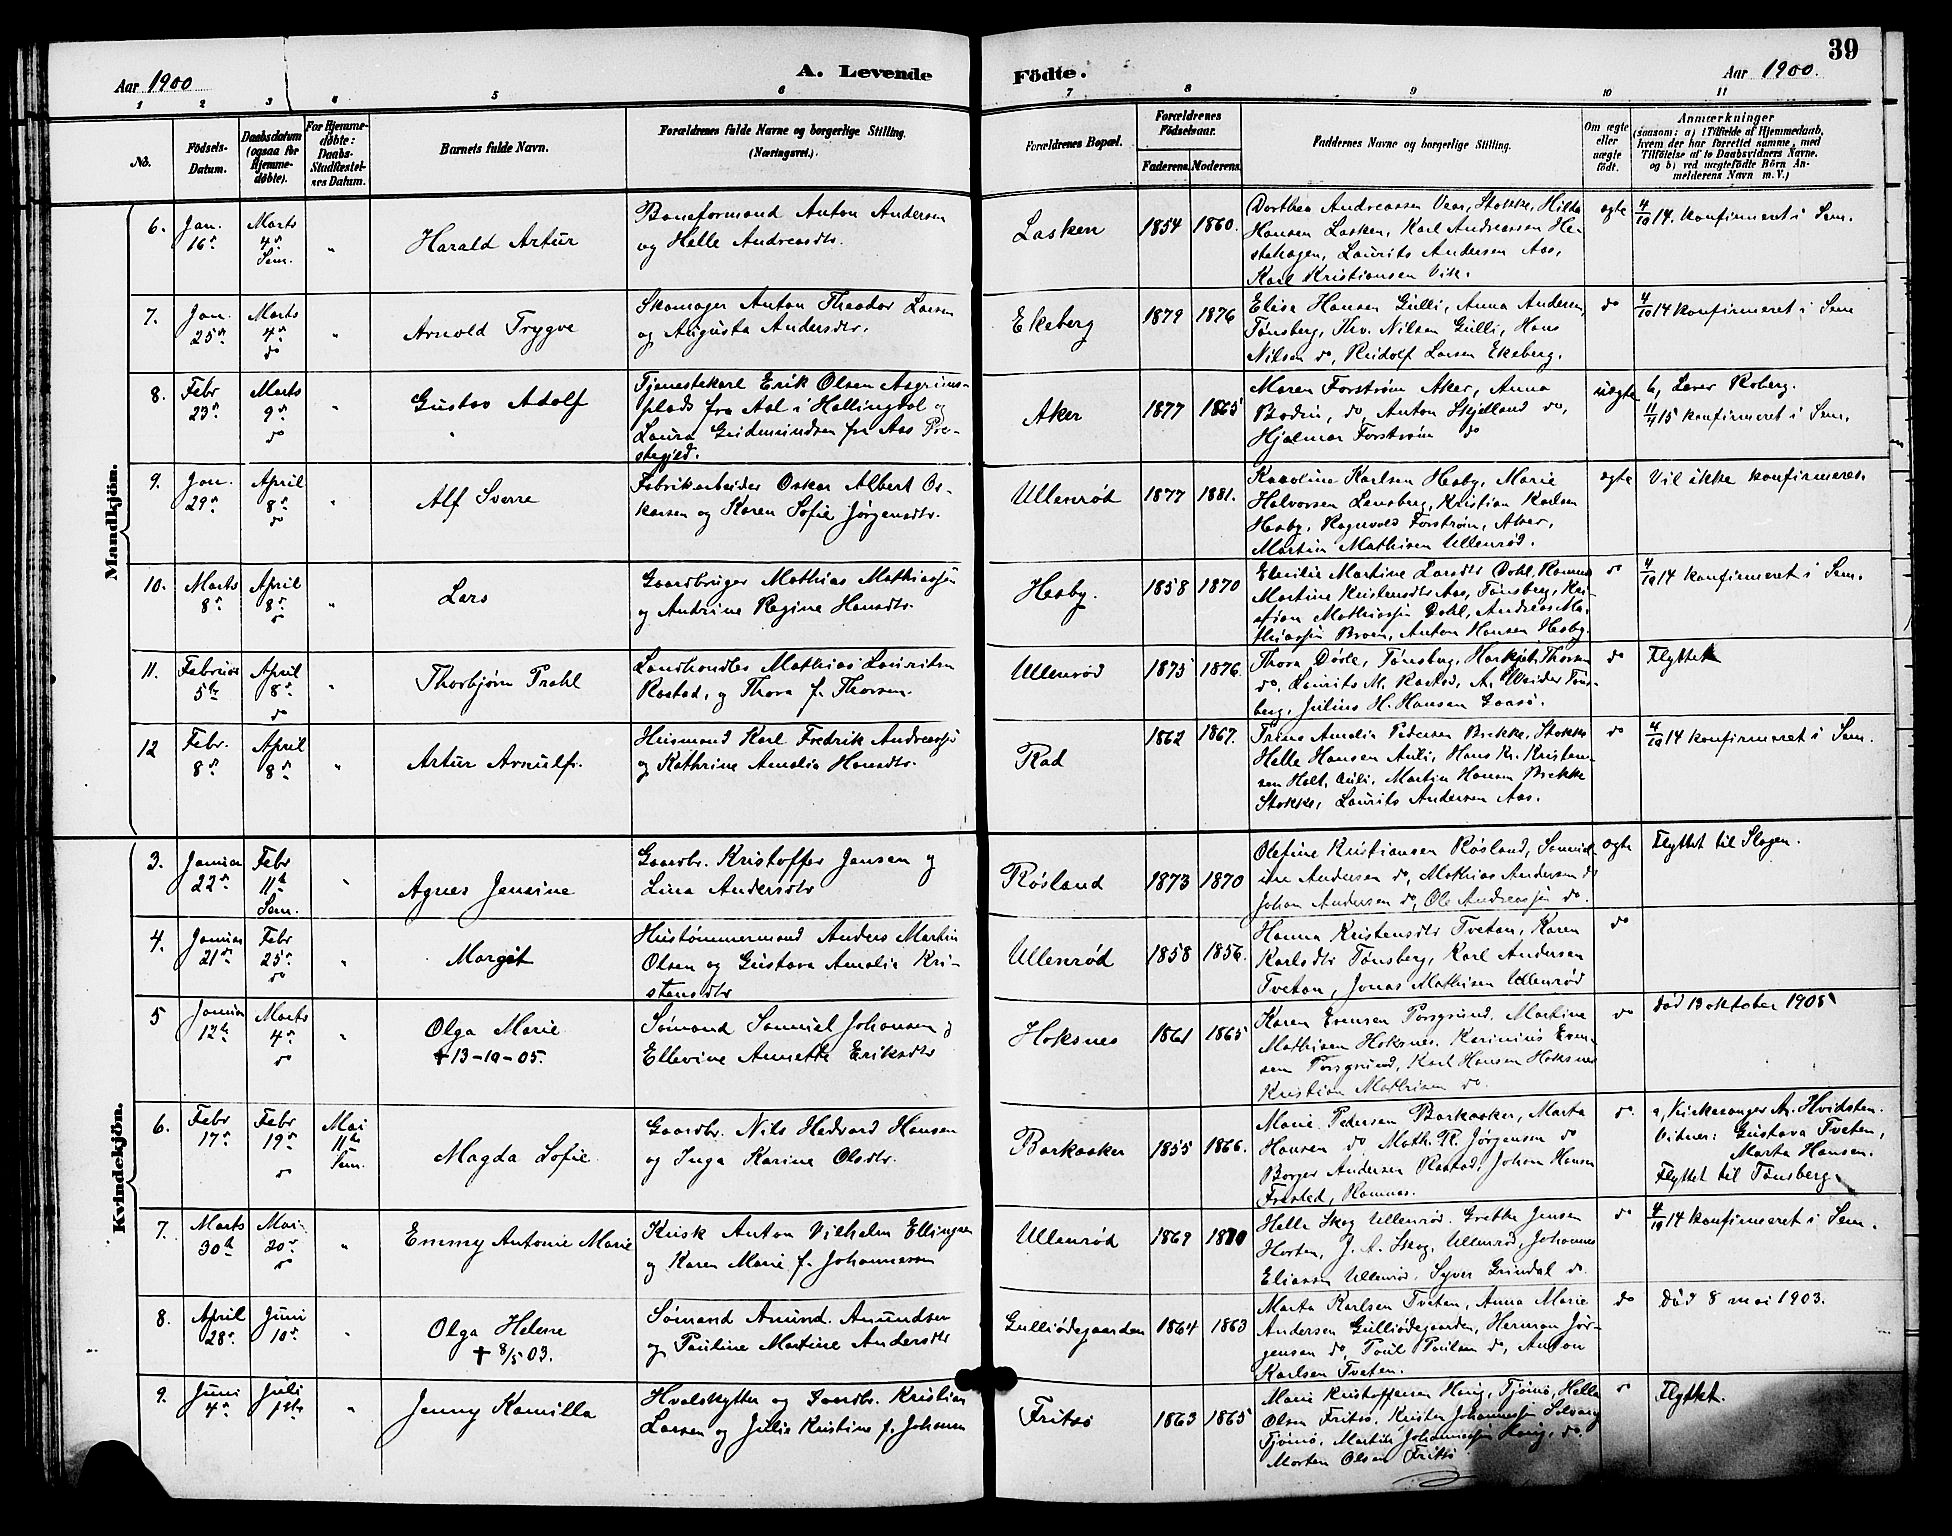 39
Aar 1900
A. Levende
Födte.
Aar 1900.
1 2 3 4 5 6 7 8 9 10 11
No.
Födsels-
Datum.
Daabsdatum
(ogsaa for
Hjemme-
döbte).
For Hjemme-
döbte:
Daabs-
Stadfæstel-
ses Datum.
Barnets fulde Navn.
Forældrenes fulde Navne og borgerlige Stilling.
(Næringsvei.)
Forældrenes Bopæl.
Forældrenes
Födselsaar.
Faderens.
Moderens.
Faddernes Navne og borgerlige Stilling.
Om ægte
eller
uægte
födt.
Anmærkninger
(saasom: a) i Tilfælde af Hjemmedaab,
hvem der har forrettet samme, med
Tilföielse af to Daabsvidners Navne,
og b) ved uægtefödte Börn An-
melderens Navn m. V.)
Mandkjön.
6.
Jan.
16de
Marts
4de
Sem.
"
Harald Artur
Baneformand Anton Andersen
og Helle Andreasdtr.
Lasken
1854
1860.
Dorthea Andreassen Vear, Stokke, Hilda
Hansen Lasken, Karl Andreassen He-
stehagen, Laurits Andersen Aas,
Karl Kristiansen Vik.
ægte
4/10 14. konfirmeret i Sem.
7.
Jan.
25de
Marts
4de
do
"
Arnold Trygve
Skomager Anton Theodor Larsen
og Augusta Andersdtr.
Ekeberg
1879
1876
Elise Hansen Gulli, Anna Andersen,
Tønsberg, Nilsen Gulli, Hans
Nilsen do, Rudolf Larsen Ekeberg.
do
4/10 14 konfirmeret i Sem
8.
Febr
23de
Marts
9de
do
"
Gustav Adolf
Tjenestekarl Erik Olsen Asgrims-
plads fra Aal i Hallingdal og
Laura Gudmundsen fra Aas Præ-
stegjeld.
Aker
1877
1865
Maren Forstrøm Aker, Anna
Bodin, do, Anton Skjelland do,
Hjalmar Forstrøm do
uægte
b, Laver Roberg.
11/4 15 konfirmeret i Sem.
9.
Jan.
29de
April
8de
do
"
Alf Sverre
Fabrikarbeider Oskar Albert Os-
karsen og Karen Sofie Jørgensdtr.
Ullenrød
1877
1881.
Karoline Karlsen Hesby, Marie
Halvorsen Lensberg, Kristian Karlsen
Hesby, Ragnvald Forstrøm, Aker,
Martin Mathisen Ullenrød.
ægte
Vil ikke konfirmeres.
10.
Marts
8de
April
8de
do
"
Lars
Gaardbruger Mathias Mathiassen
og Andrine Regine Hansdtr.
Hesby.
1858
1870
Emilie Martine Larsdtr Dahl, Ramnes
Martine Kristensdtr Aas, Tønsberg, Kri-
stian Mathiassen Dahl, Andreas Ma-
thiassen Broen, Anton Hansen Hesby.
do
4/10 14 konfirmeret i Sem.
11.
Februar
5te
April
8de
do
"
Thorbjørn Prahl
Landhandler Mathias Lauritsen
Rastad, og Thora f. Thorsen.
Ullenrød
1875
1876.
Thora Døvle, Tønsberg, Thorsen
do, Laurits M. Rastad, A. Weider Tøns-
berg, Julius H. Hansen Gaasø.
do
Flyttet
12
Febr.
8de
April
8de
"
Artur Arnulf.
Husmand Karl Fredrik Andreassen
og Kathrine Amalia Hansdtr.
Rad
1862
1867.
Trine Amalia Pedersen Brekke, Stokke
Helle Hansen Auli, Hans Kr. Kristen-
sen Holt, Auli, Martin Hansen Brekke
Stokke, Laurits Andersen Aas.
do
4/10 14 konfirmeret i Sem.
Kvindekjön.
3.
Januar
22de
Febr
11te
Sem.
"
Agnes Jensine
Gaardbr. Kristoffer Jensen og
Lina Andersdtr
Røsland
1873
1870
Olefine Kristiansen Røsland, Samuel-
ine Andersen do, Mathias Andersen do
Johan Andersen do, Ole Andreassen do.
ægte
Flyttet til Slagen.
4.
Januar
21de
Febr
25de
do
"
Margit
Hustømmermand Anders Martin
Olsen og Gustava Amalia Kri-
stensdtr
Ullenrød
1858
1856.
Hanna Kristensdtr Tveten, Karen
Karlsdtr Tønsberg, Karl Andersen
Tveten, Jonas Mathisen Ullenrød
do
5
Januar
12te
Marts
4de
do
"
Olga Marie
✝13-10-05.
Sømand Samuel Johansen og
Ellevine Annette Eriksdtr
Hoksnes
1861
1865
Karen Evensen Porsgrund, Martine
Mathisen Hoksnes, Karinius Even-
sen Porsgrund, Karl Hansen Hoksnes
Kristian Mathisen do.
do
Død 13 oktober 1905
6.
Febr
17de
Febr
19de
do
Mai
11te
Sem.
Magda Sofie
Gaardbr. Nils Hedvard Hansen
og Inga Karine Olsdtr.
Barkaaker
1855
1866.
Marie Pedersen Barkaaker, Marta
Hansen do, Math. R. Jørgensen do
Borger Andersen Rastad, Johan Hansen
Frested, Ramnes.
do.
a, Kirkesanger A. Hvidsten.
Vidner: Gustava Tveten,
Marta Hansen.
Flyttet til Tønsberg.
7.
Marts
30te
Mai
20de
do
"
Emmy Antonie Marie
Kusk Anton Vilhelm Ellingsen
og Karen Marie f. Johannesen
Ullenrød
1869
1870
Helle Skog Ullenrød, Grethe Jensen
Horten, J. A. Skog, Ullenrød, Johannes
Eliassen Ullenrød, Syver Grindal do.
do
4/10 14 konfirmeret i Sem.
8.
April
28de
Juni
10de
"
Olga Helene
✝ 8/5 03.
Sømand Amund Amundsen
og Pauline Martine Andersdtr
Gulliødegaarden
1864
1863
Marta Karlsen Tveten, Anna Marie
Andersen Gulliødegaarden, Herman Jør-
gensen do, Poul Poulsen do, Anton
Karlsen Tveten.
do
Død 8 mai 1903.
9.
Juni
4de
Juli
1ste
"
Jenny Kamilla
Hvalskytter og Gaardbr. Kristian
Larsen og Julie Kristine f. Johansen
Fritsø
1863
1865
Marie Kristoffersen Haug, Tjømø, Helle
Olsen Fritsø, Kristen Johannessen Solvang
Tjømø, Martin Johannessen Haug, do.
Morten Olsen Fritsø
do
Flyttet.